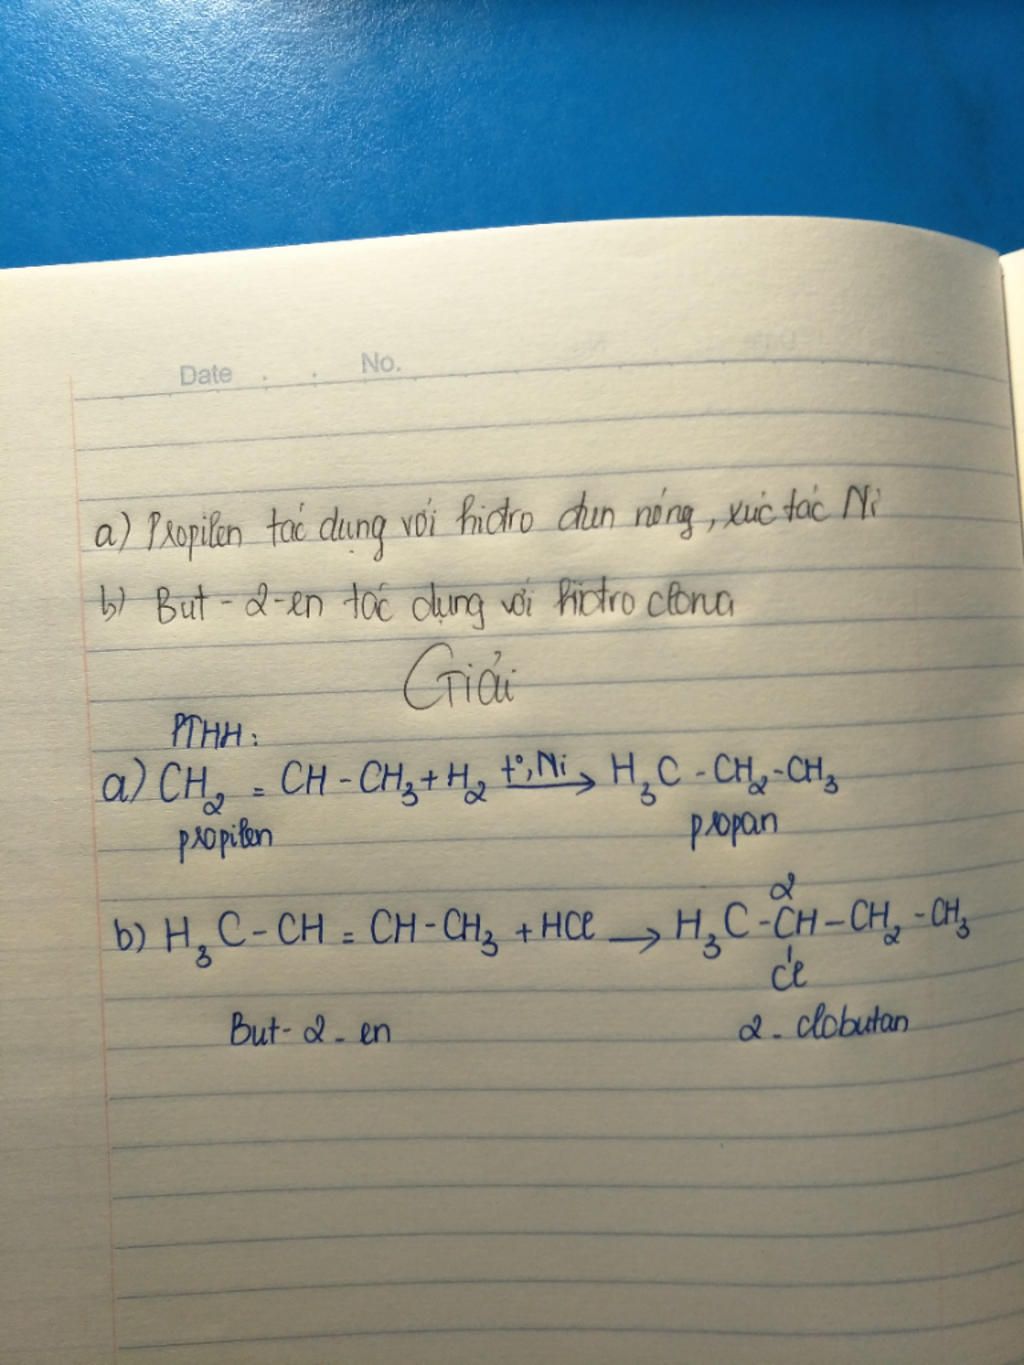 Date . . No.
a) Propilen tác dụng với hidro đun nóng, xúc tác Ni
b) But-2-en tác dụng với hidro clorua
Giải
PTHH:
a) CH₂ = CH - CH₃ + H₂ t°, Ni → H₃C - CH₂ - CH₃
propilen propan
2
b) H₃C - CH = CH - CH₃ + HCl → H₃C - CH - CH₂ - CH₃
Cl
But-2-en 2-clobutan